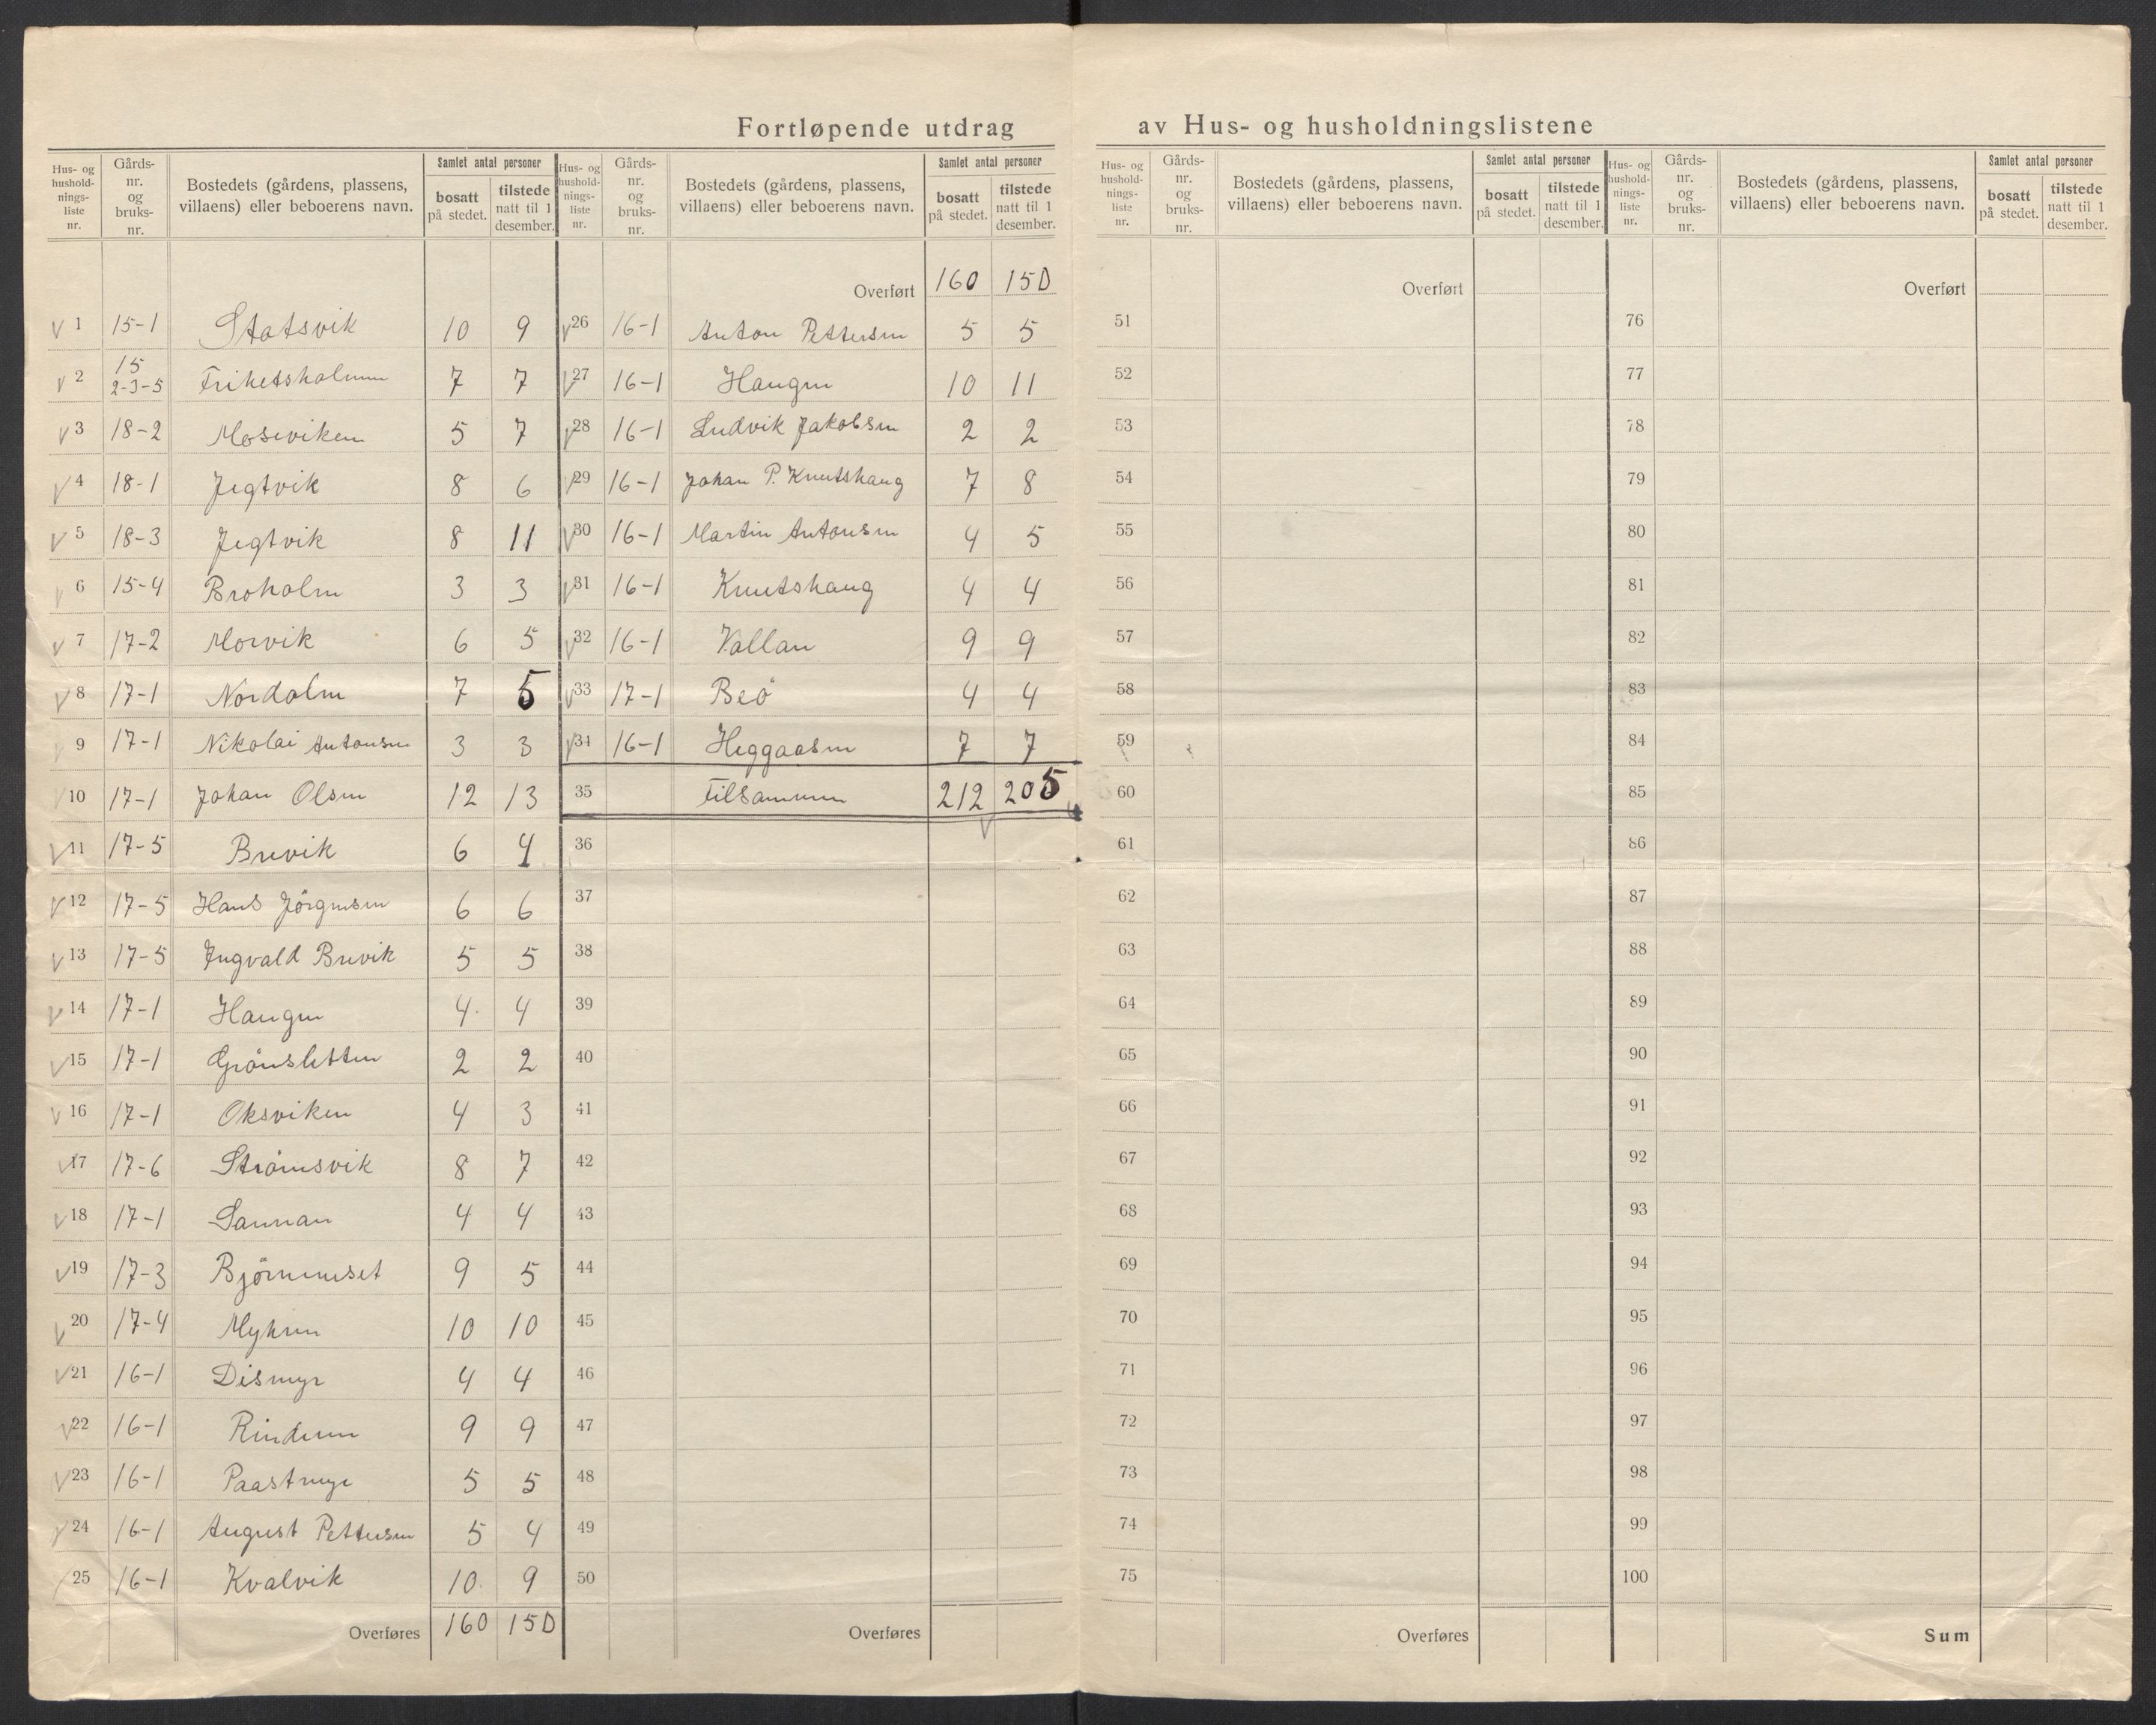 Fortløpende utdrag av Hus- og husholdningslistene
Hus- og hushold-nings-liste nr. | Gårds-nr. og bruks-nr. | Bostedets (gårdens, plassens, villaens) eller beboerens navn. | Samlet antal personer | bosatt på stedet. | tilstede natt til 1 desember.
1 15-1 Statsvik 10 9
2 15 2-3-5 Frihetsholmen 7 7
3 18-2 Moseviken 5 7
4 18-1 Jegtvik 8 6
5 18-3 Jegtvik 8 11
6 15-4 Broholm 3 3
7 17-2 Morvik 6 5
8 17-1 Nordalen 7 5
9 17-1 Nikolai Antonsen 3 3
10 17-1 Johan Olsen 12 13
11 17-5 Brevik 6 4
12 17-5 Hans Jörgensen 6 6
13 17-5 Ingvald Brevik 5 5
14 17-1 Haugen 4 4
15 17-1 Grönsletten 2 2
16 17-1 Oksviken 4 3
17 17-6 Strömsvik 8 7
18 17-1 Sannan 4 4
19 17-3 Björnneset 9 5
20 17-4 Myhren 10 10
21 16-1 Dismyr 4 4
22 16-1 Rindenn 9 9
23 16-1 Paastmyr 5 5
24 16-1 August Pettersen 5 4
25 16-1 Kvalvik 10 9
Overføres 160 150
Hus- og hushold-nings-liste nr. | Gårds-nr. og bruks-nr. | Bostedets (gårdens, plassens, villaens) eller beboerens navn. | Samlet antal personer | bosatt på stedet. | tilstede natt til 1 desember.
Overført 160 150
26 16-1 Anton Pettersen 5 5
27 16-1 Haugen 10 11
28 16-1 Ludvik Jakobsen 2 2
29 16-1 Johan P. Knutshaug 7 8
30 16-1 Martin Antonsen 4 5
31 16-1 Knutshaug 4 4
32 16-1 Vallan 9 9
33 17-1 Beö 4 4
34 16-1 Heggaasen 7 7
35 Tilsammen 212 205
36
37
38
39
40
41
42
43
44
45
46
47
48
49
50
Overføres
Hus- og hushold-nings-liste nr. | Gårds-nr. og bruks-nr. | Bostedets (gårdens, plassens, villaens) eller beboerens navn. | Samlet antal personer | bosatt på stedet. | tilstede natt til 1 desember.
Overført
51
52
53
54
55
56
57
58
59
60
61
62
63
64
65
66
67
68
69
70
71
72
73
74
75
Overføres
Hus- og hushold-nings-liste nr. | Gårds-nr. og bruks-nr. | Bostedets (gårdens, plassens, villaens) eller beboerens navn. | Samlet antal personer | bosatt på stedet. | tilstede natt til 1 desember.
Overført
76
77
78
79
80
81
82
83
84
85
86
87
88
89
90
91
92
93
94
95
96
97
98
99
100
Sum